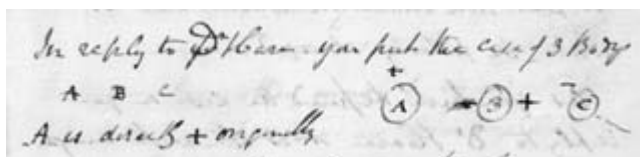 In reply to Dr Hare. you put the case of 3 Bodys
A B C + A - B + - C
A is directly + originally